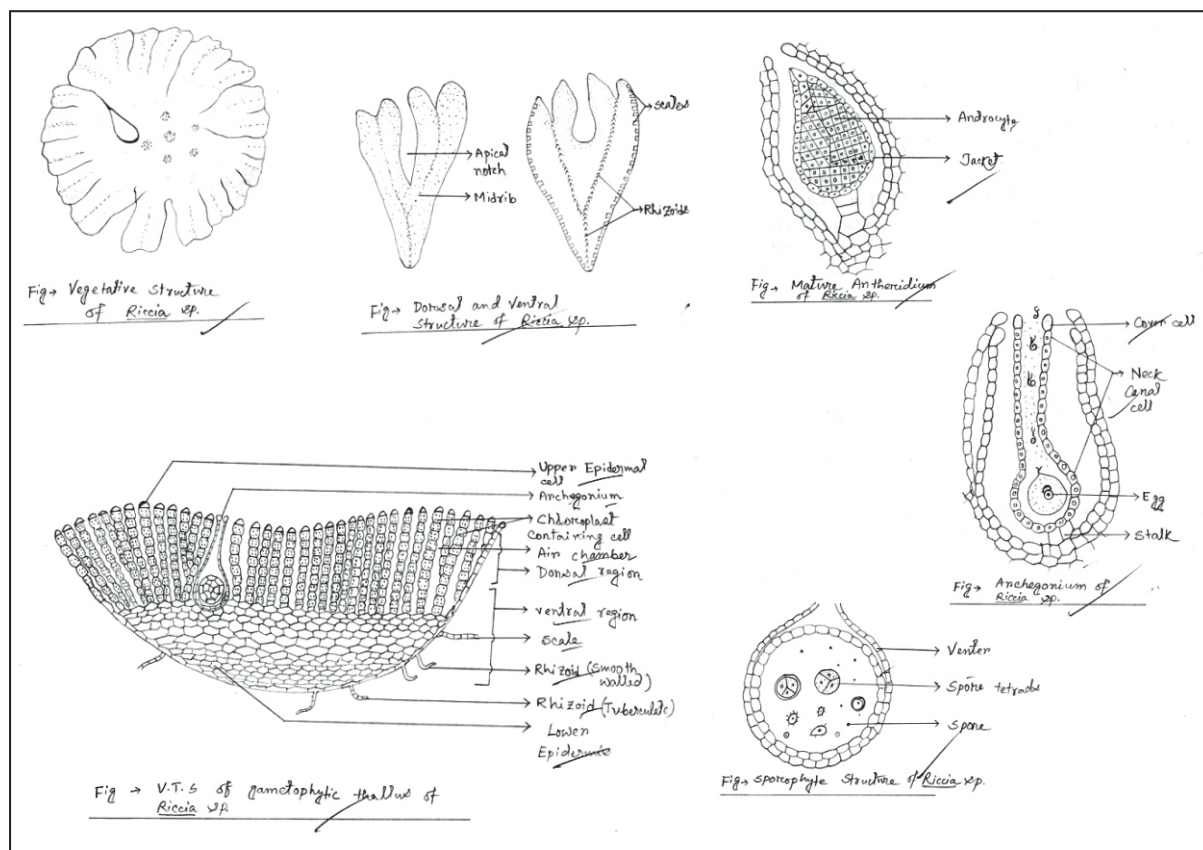 Apical
notch
Midrib
scales
Rhizoids
Fig → Vegetative structure
of Riccia sp.
Fig → Dorsal and Ventral
structure of Riccia sp.
Androcyte
Jacket
Fig → Mature Antheridium
of Riccia sp.
Cover cell
Neck
Canal
cell
Egg
Stalk
Fig → Archegonium of
Riccia sp.
Upper Epidermal
cell
Archegonium
Chloroplast
containing cell
Air chamber
Dorsal region
ventral region
Scale
Rhizoid (Smooth
walled)
Rhizoid (Tuberculetc)
Lower
Epidermis
Fig → V.T.S of gametophytic thallus of
Riccia sp
Venter
Spore tetrads
Spore
Fig → Sporophyte Structure of Riccia sp.